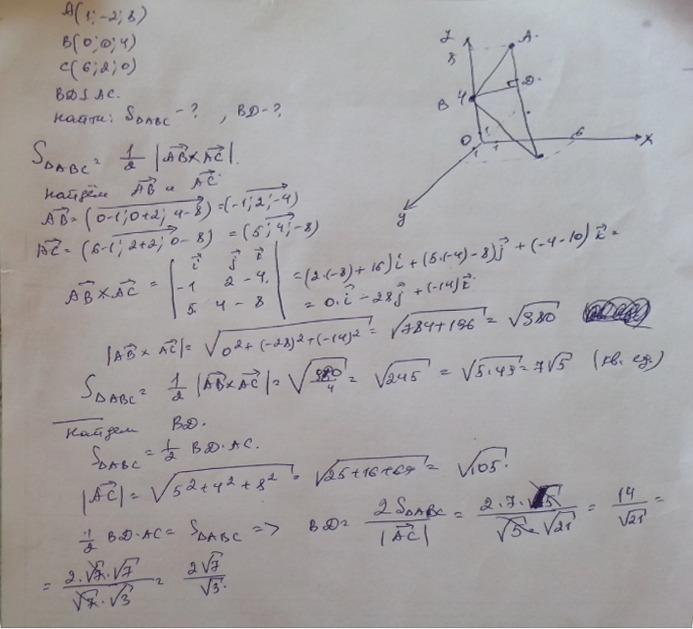 A(1; -2; 8)
B(0; 0; 4)
C(6; 2; 0)
BD⊥AC.
найти: S△ABC - ?, BD - ?
z
8
A.
B 4
D.
O
1
1
1
6
x
y
S△ABC = 1/2 |AB × AC|.
найдём AB и AC.
AB = (0-1; 0+2; 4-8) = (-1; 2; -4)
AC = (6-1; 2+2; 0-8) = (5; 4; -8)
AB × AC = | i j k | -1 2 -4 | 5 4 -8 | = (2·(-8)+16)i + (5·(-4)-8)j + (-4-10)k =
= 0·i - 28j + (-14)k.
|AB × AC| = √(0² + (-28)² + (-14)²) = √(784+196) = √980
S△ABC = 1/2 |AB × AC| = √(980/4) = √245 = √(5·49) = 7√5 (кв. ед.)
Найдем BD.
S△ABC = 1/2 BD·AC.
|AC| = √(5² + 4² + 8²) = √(25+16+64) = √105.
1/2 BD·AC = S△ABC => BD = 2S△ABC / |AC| = 2·7·√5 / √5·√21 = 14/√21 =
= 2·√7·√7 / √7·√3 = 2√7 / √3.